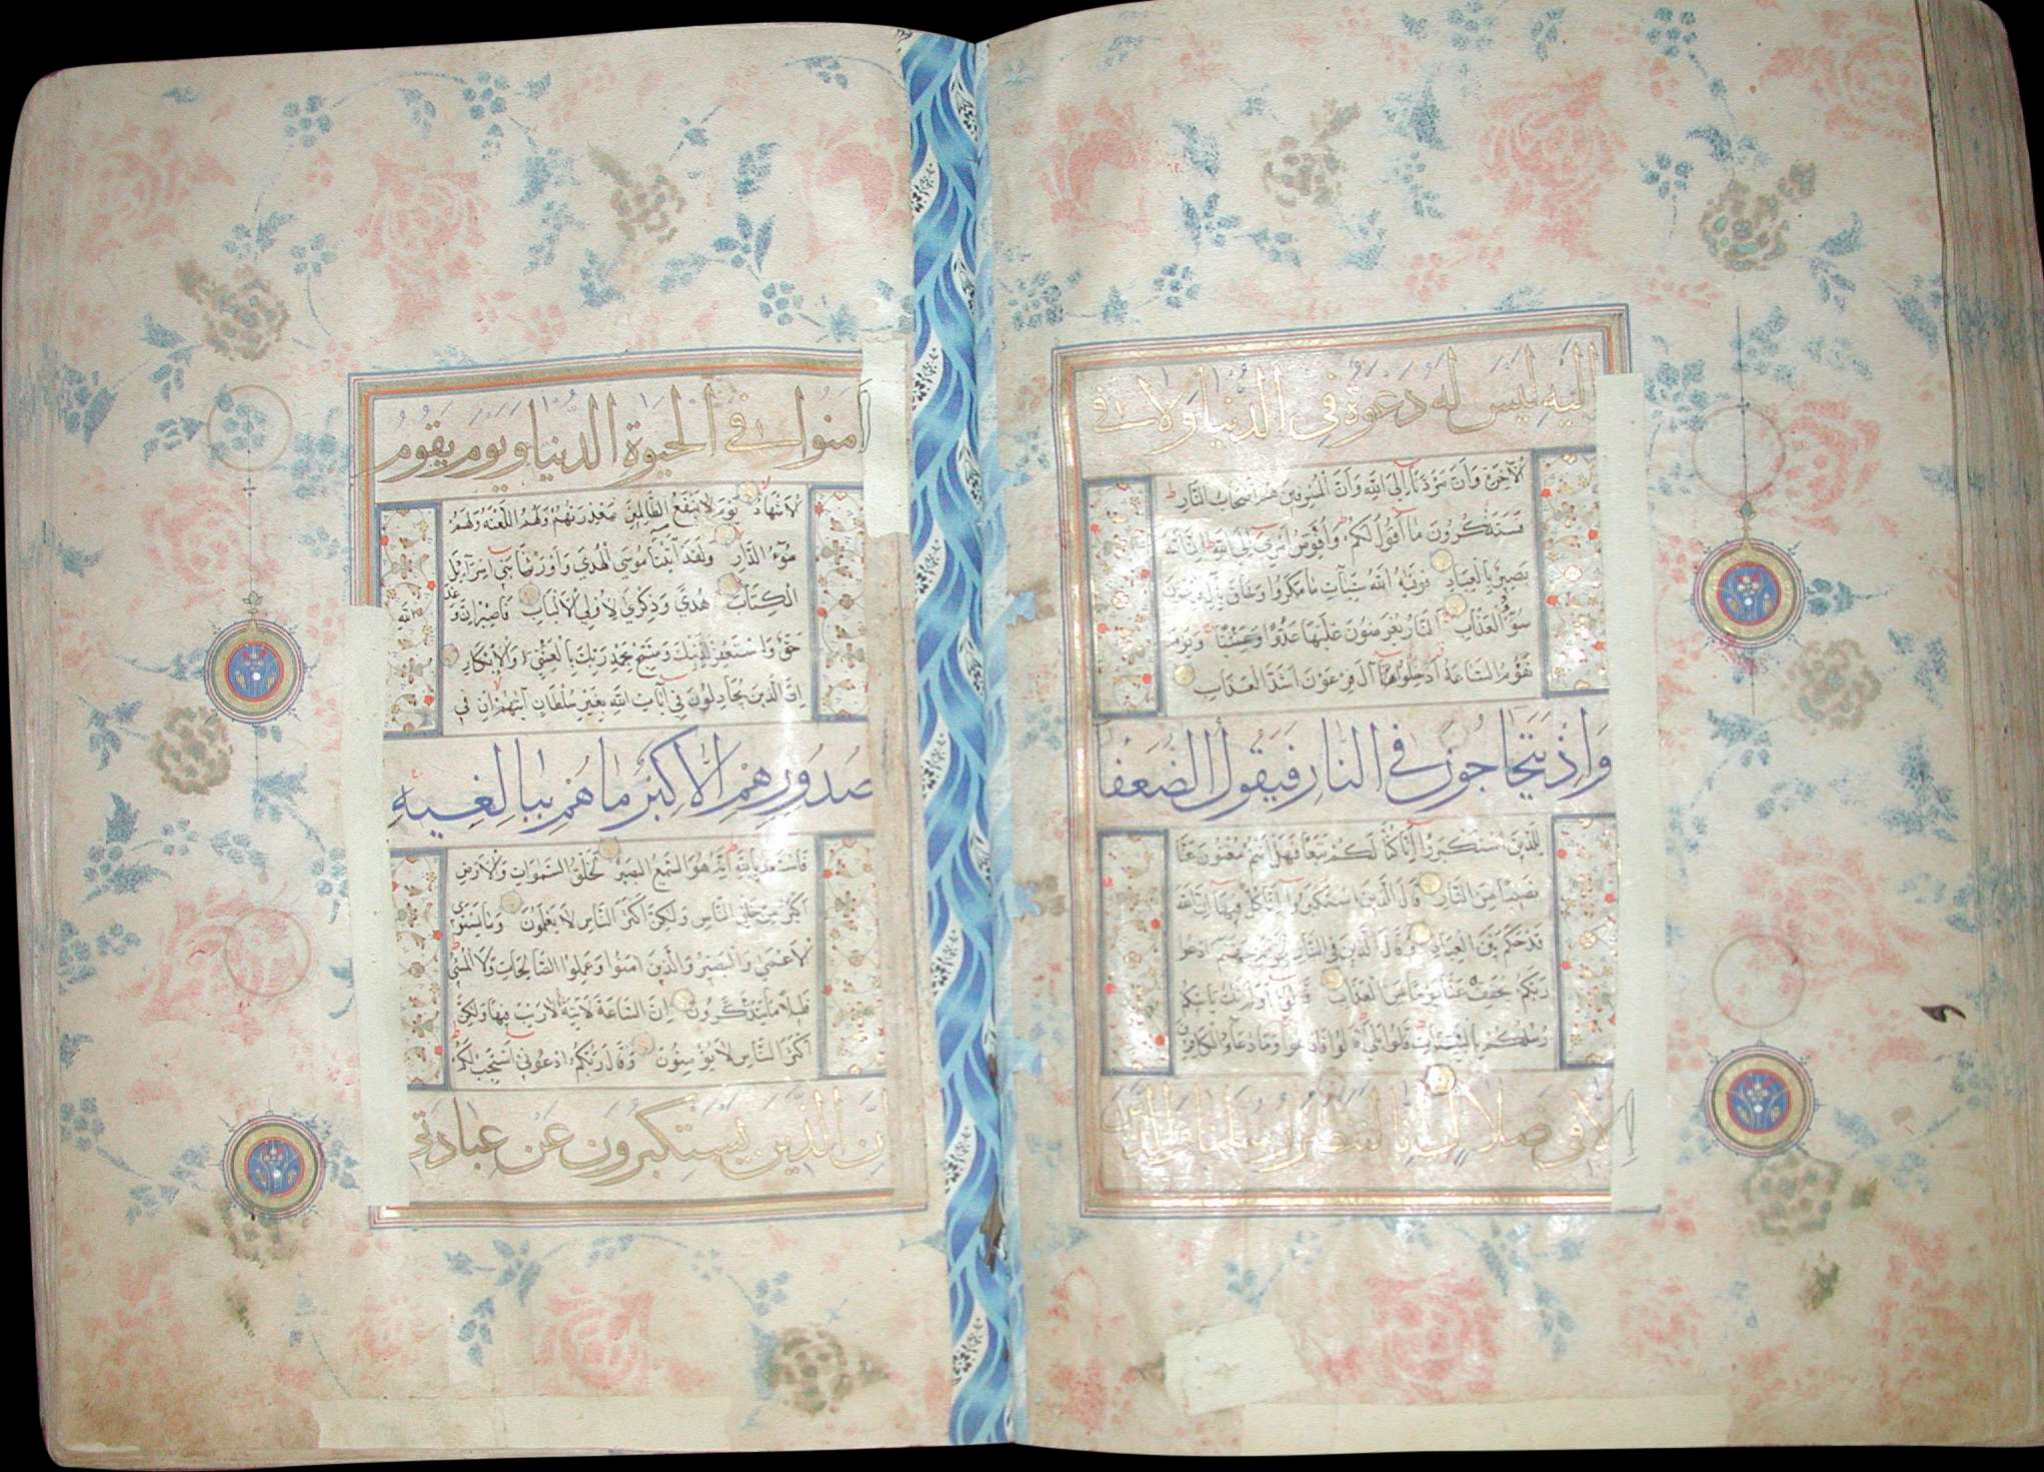 اليه ليس له دعوة في الدنيا ولا في
الآخرة وأن مردنا إلى الله وأن المسرفين هم أصحاب النار
فستذكرون ما أقول لكم وأفوض أمري إلى الله إن الله
بصير بالعباد فوقيه الله سيئات ما مكروا وحاق بآل فرعون
سوء العذاب النار يعرضون عليها غدوا وعشيا ويوم
تقوم الساعة أدخلوا آل فرعون أشد العذاب
وإذ يتحاجون في النار فيقول الضعفا
للذين استكبروا إنا كنا لكم تبعا فهل أنتم مغنون عنا
نصيبا من النار قال الذين استكبروا إنا كل فيها إن الله
قد حكم بين العباد وقال الذين في النار لخزنة جهنم ادعوا
ربكم يخفف عنا يوما من العذاب قالوا أولم تك تأتيكم
رسلكم بالبينات قالوا بلى قالوا فادعوا وما دعاء الكافرين
إلا في ضلال إنا لننصر رسلنا والذين
آمنوا في الحيوة الدنيا ويوم يقوم
الأشهاد يوم لا ينفع الظالمين معذرتهم ولهم اللعنة ولهم
سوء الدار ولقد آتينا موسى الهدى وأورثنا بني إسرآئيل
الكتاب هدى وذكرى لأولي الألباب فاصبر إن وعد الله
حق واستغفر لذنبك وسبح بحمد ربك بالعشي والإبكار
إن الذين يجادلون في آيات الله بغير سلطان أتيهم إن في
صدورهم إلا كبر ما هم ببالغيه
فاستعذ بالله إنه هو السميع البصير لخلق السموات والأرض
أكبر من خلق الناس ولكن أكثر الناس لا يعلمون وما يستوي
الأعمى والبصير والذين آمنوا وعملوا الصالحات ولا المسيء
قليلا ما يتذكرون إن الساعة لآتية لا ريب فيها ولكن
أكثر الناس لا يؤمنون وقال ربكم ادعوني أستجب لكم
إن الذين يستكبرون عن عبادتي